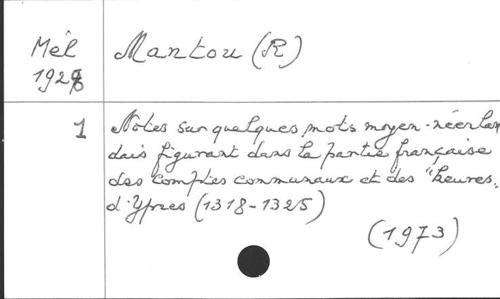 Mél Mantou (R)
192
1 Notes sur quelques mots moyen-néerlan
dais figurant dans la partie française
des comptes communaux et des "keures,
d'Ypres (1318-1325)
(1973)